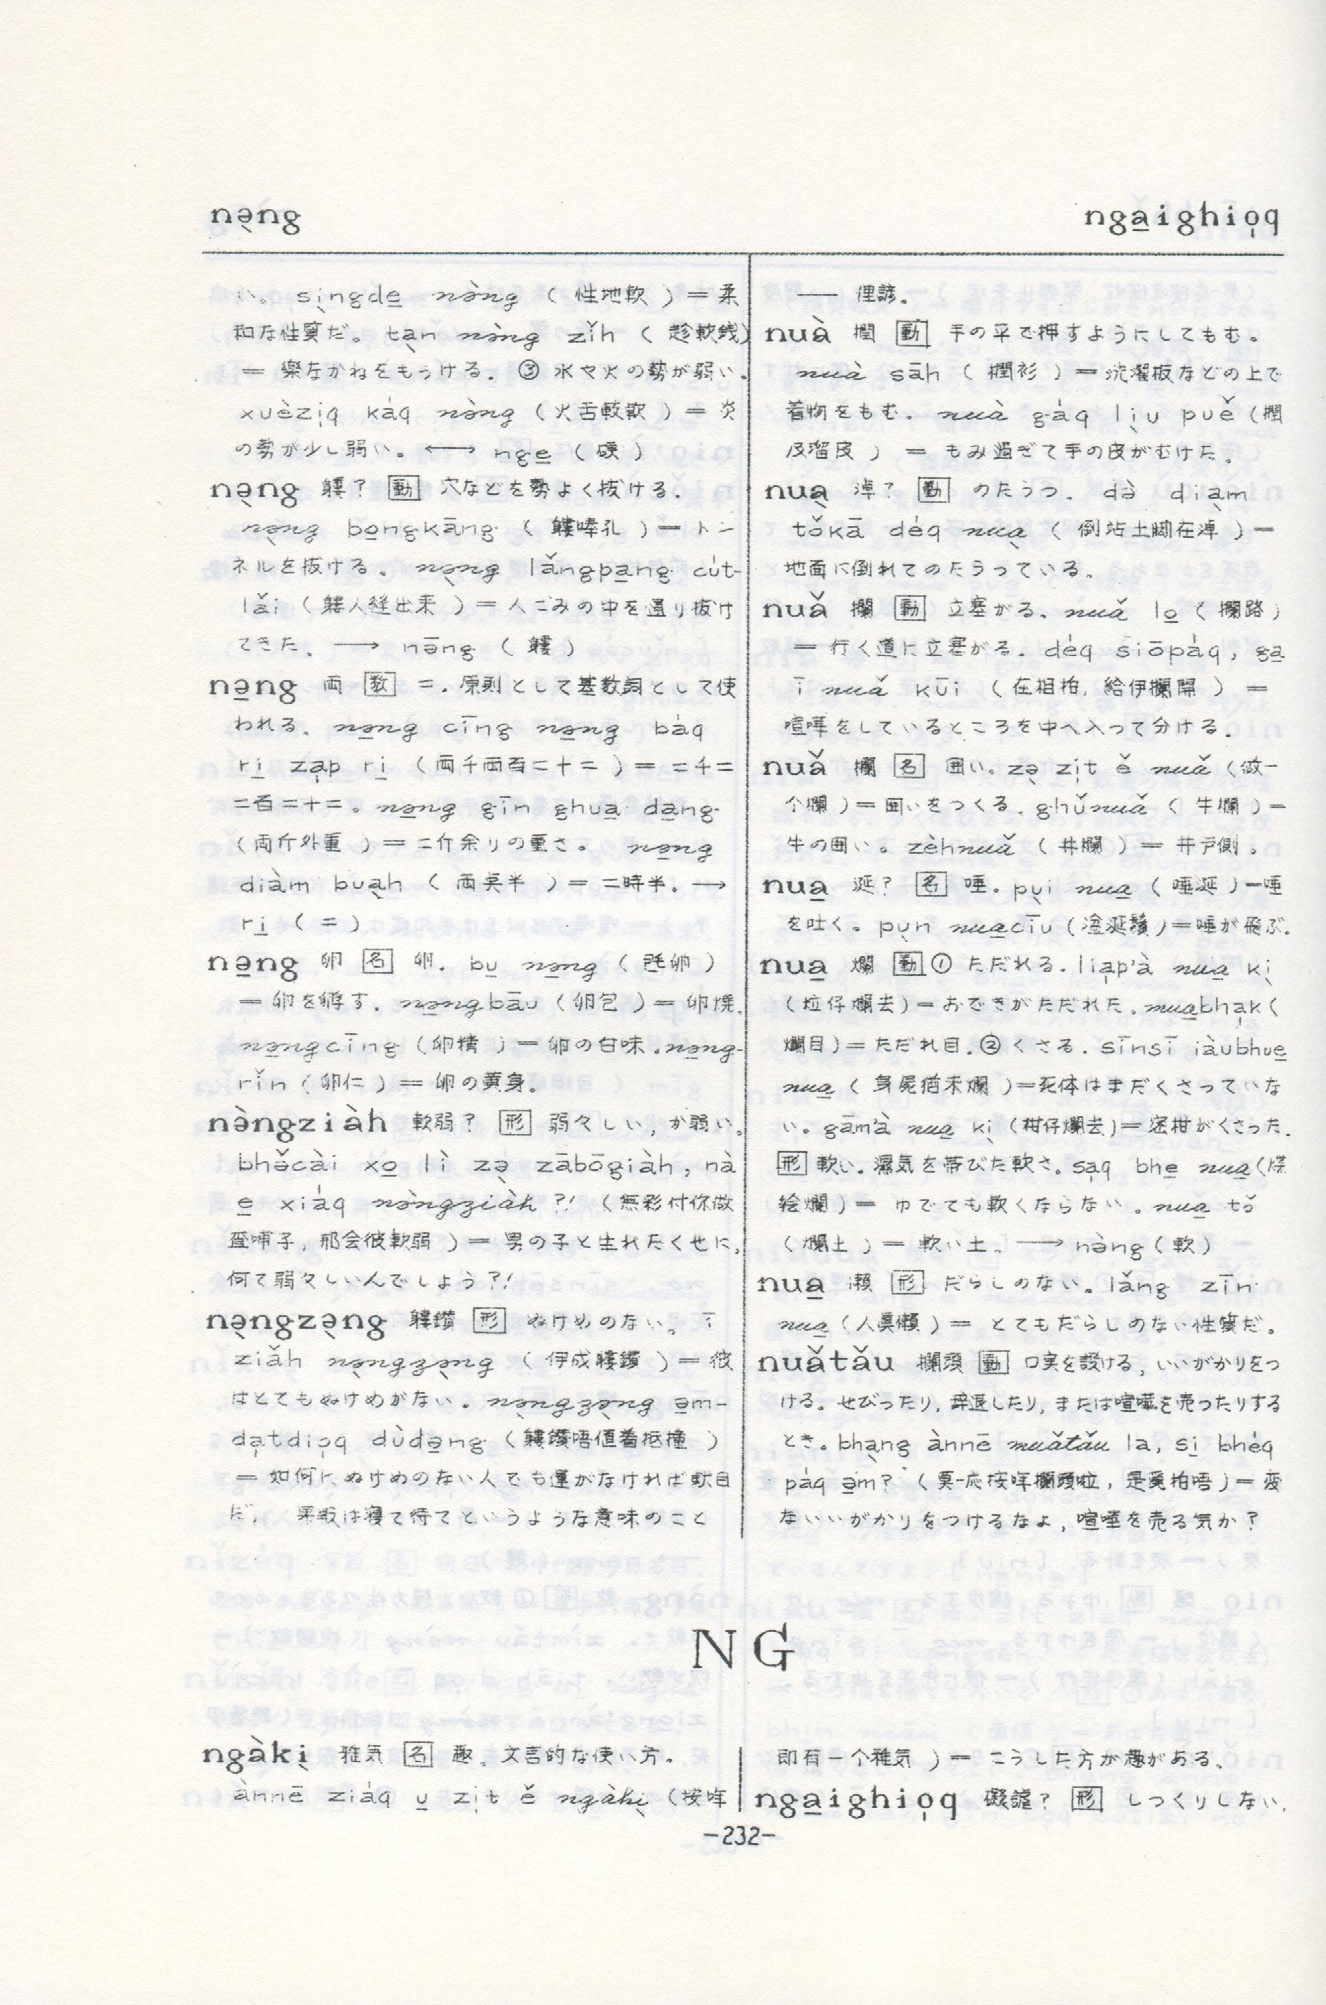 nə̣ng
nga̱ighio̩q
い。si̩ngde̱ nə̀ng (性地軟)=柔
和な性質だ。tə̣̀n nə̀ng zǐh (趁軟銭)
= 楽なかねをもうける。③水や火の勢が弱い。
xuèzi̩q káq nə̀ng (火舌較軟)=炎
の勢が少し弱い。⟷ nge̱ (硬)
nə̣ng 䠼? 動 穴などを勢よく抜ける。
nə̣ng bo̱ngkāng ( 孔 )=トン
ネルを抜ける。nə̣ng lǎngpa̱ng cut-
lǎi ( 人縫出来 )=人ごみの中を通り抜け
てきた。⟶ nəng ( )
nə̱ng 両 数 二。原則として基数詞として使
われる。nə̱ng cīng nə̱ng báq
ri̱ za̩p ri̱ (両千両百二十二)=二千二
二百二十二。nə̱ng gīn ghua̱ da̱ng
(両斤外重)=二斤余りの重さ。nə̱ng
diàm bua̩h (両点半)=二時半。⟶
ri̱ (二)
nə̱ng 卵 名 卵。bu̱ nə̱ng ( 卵)
=卵を孵す。nə̱ngbāu (卵包)=卵焼。
nə̱ngcīng (卵清)=卵の白味。nə̱ng-
rǐn (卵仁)=卵の黄身。
nə̀ngziàh 軟弱? 形 弱々しい,か弱い。
bhə̌cài xo̱ lì zə̣ zābōgiàh, nà
e̱ xiáq nə̀ngziàh ?! (無彩付你做
查哺子,那会彼軟弱)=男の子と生れたくせに,
何て弱々しいんでしよう?!
nə̣ngzə̣ng 鑽 形 ぬけめのない。ī
ziǎh nə̣ngzə̣ng (伊成 鑽)=彼
はとてもぬけめがない。nə̣ngzə̣ng ə̱m-
da̩tdio̩q dùda̱ng ( 鑽唔値着 撞)
=如何にぬけめのない人でも運がなければ駄目
だ, 果報は寝て待てというような意味のこと
── 俚諺。
nuà 撋 動 手の平で押すようにしてもむ。
nuà sāh (撋衫)=洗濯板などの上で
着物をもむ。nuà gáq li̩u puě (撋
及瑠皮)= もみ過ぎて手の皮がむけた。
nuạ 淖? 動 のたうつ。dà diàm
tǒkā déq nuạ (倒 土脚在淖)=
地面に倒れてのたうっている。
nuǎ 攔 動 立塞がる。nuǎ lo̱ (攔路)
=行く道に立塞がる。déq siōpáq, ga̱
ī nuǎ kūi (在相拍,給伊攔開)=
喧嘩をしているところを中へ入って分ける。
nuǎ 欄 名 囲い。zə̣ zi̩t ě nuǎ (做一
个欄)=囲いをつくる。ghǔnuǎ (牛欄)=
牛の囲い。zèhnuǎ (井欄)=井戸側。
nua̱ 涎? 名 唾。pụi nua̱ (唾涎)=唾
を吐く。pụn nua̱cīu (涎鬚)=唾が飛ぶ。
nua̱ 爛 動①ただれる。lia̩p'à nua̱ kị
(粒仔爛去)=おできがただれた。nua̱bha̩k (
爛目)=ただれ目。②くさる。sīnsī iàubhue̱
nua̱ (身屍猶未爛)=死体はまだくさっていな
い。gāmà nua̱ kị (柑仔爛去)=蜜柑がくさった。
形 軟い。濕気を帯びた軟さ。sa̩q bhe̱ nua̱ (
 爛)=ゆでても軟くならない。nua̱ tǒ
(爛土)=軟い土。⟶ nə̀ng (軟)
nua̱ 瀬 形 だらしのない。lǎng zīn
nua̱ (人眞懶)= とてもだらしのない性質だ。
nuǎtǎu 攔頭 動 口実を設ける,いいがかりをつ
ける。せびったり,辞退したり,または喧嘩を売ったりする
とき。bhạng ànnē nuǎtǎu la, si̱ bhéq
páq ə̱m? (莫一応按咩攔頭啦,是 拍唔)=変
ないいがかりをつけるなよ,喧嘩を売る気か?
NG
ngàkị 雅気 名 趣。文言的な使い方。
ànnē ziáq u̱ zi̩t ě ngàkị (按咩
即有一个雅気)= こうした方が趣がある。
nga̱ighio̩q 礙謔? 形 しつくりしない。
−232−